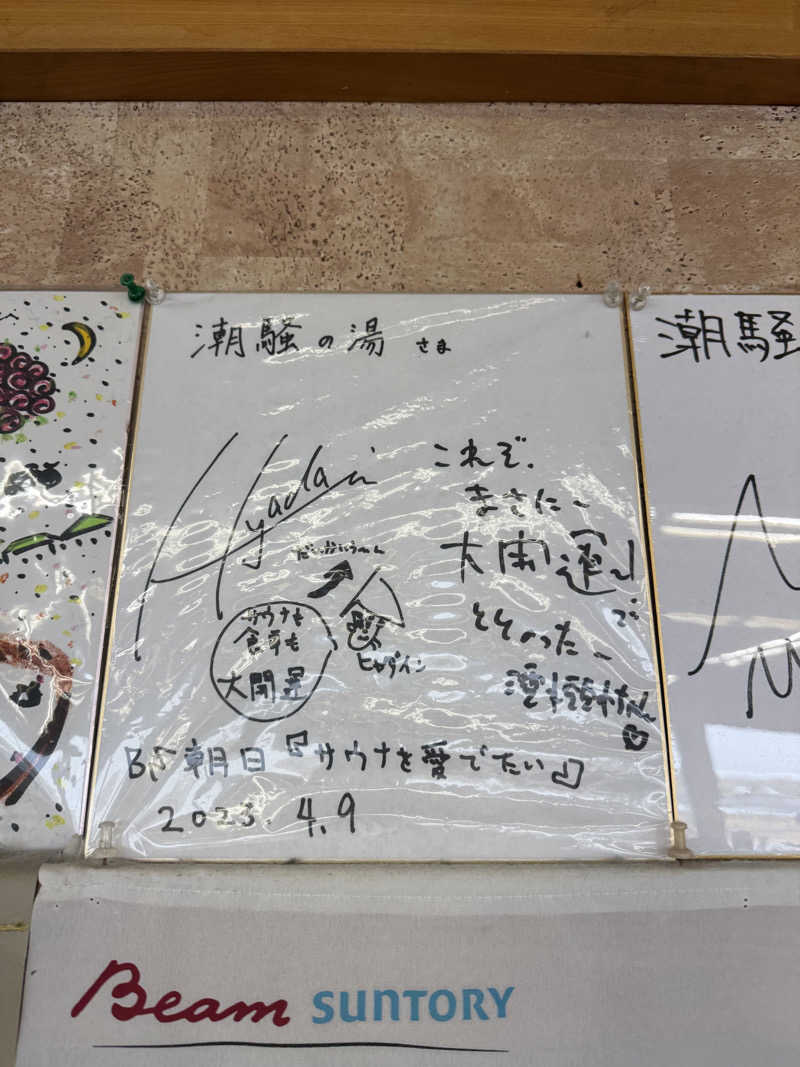 潮騒の湯 さま
Hyadain
これぞ、
まさに〜
大開運」
で
ととのった〜
ヒャダイン
サウナも
食事も
大開運
BS朝日『サウナを愛でたい』
2023.4.9
潮騒
Beam SUNTORY